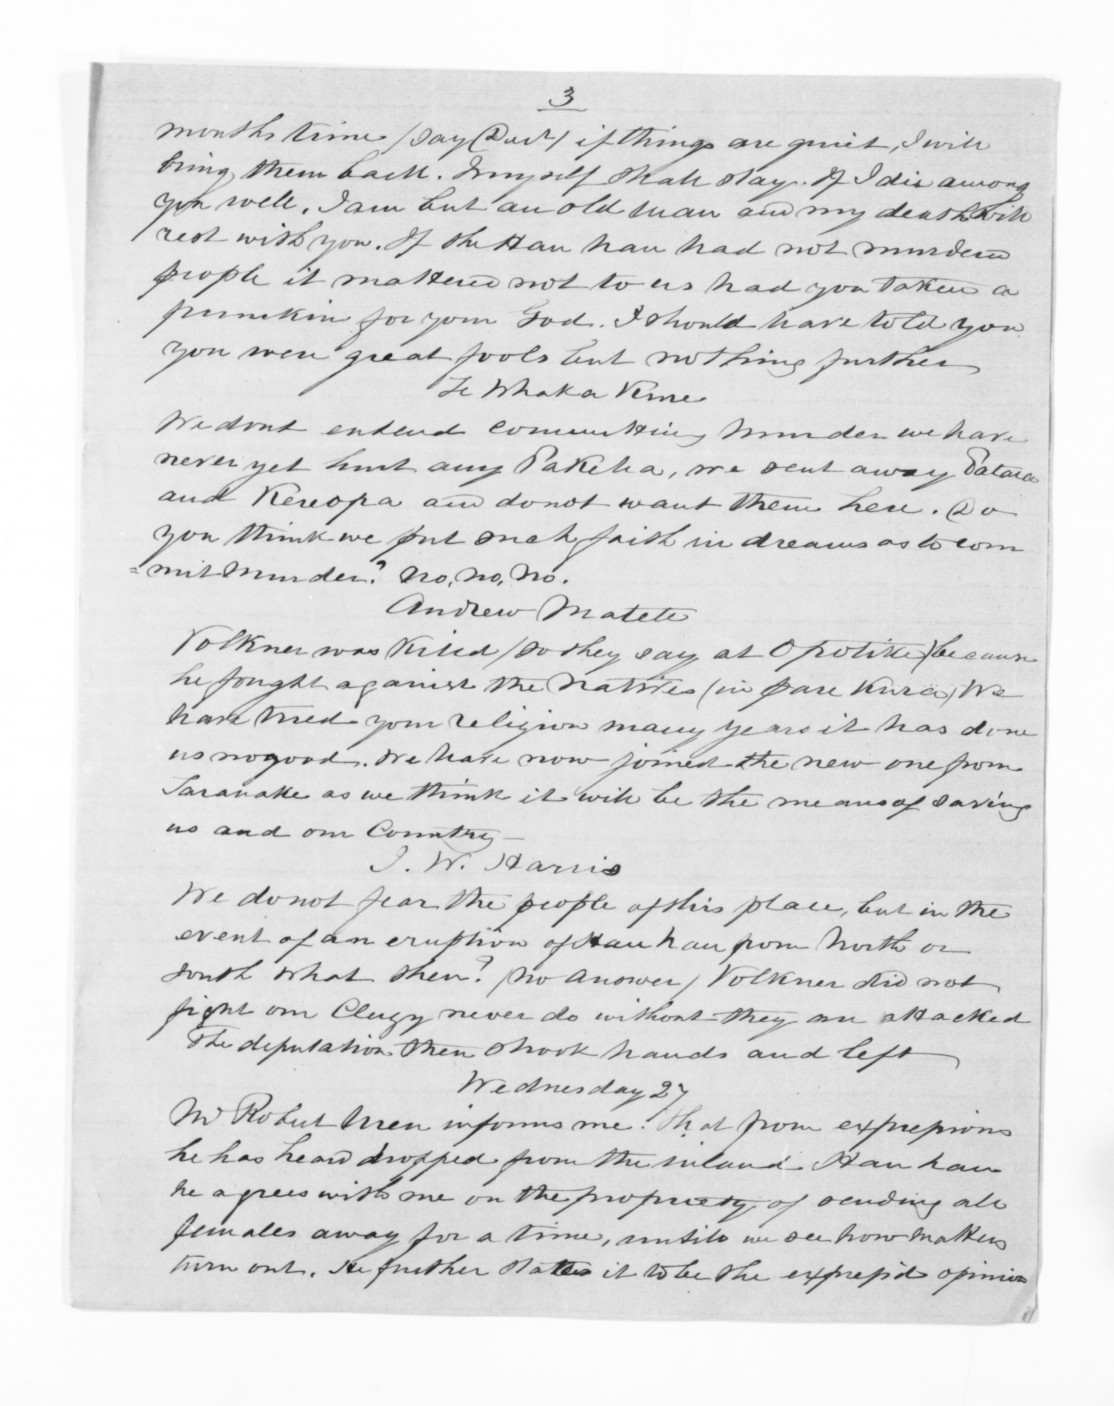 3
months time (say Decr) if things are quiet, I will
bring them back. I myself shall stay. If I die among
you well. I am but an old man and my death will
rest with you. If the Hau hau had not murdered
people it mattered not to us had you taken a
pumkin for your God. I should have told you
you were great fools but nothing further
Te Whaka
We dont entend committing Murder we have
never yet hurt any Pakeha, we sent away Patara
and Kereopa and do not want them here. Do
you think we put such faith in dreams as to com
=mit Murder? No, No, No.
Andrew Matete
Volkner was killed (so they say at Opotiki) because
he fought against the Natives (in pare Kura) We
have tried your religion many years it has done
us no good. We have now joined the new one from
Taranake as we think it will be the means of saving
us and our Country —
J. W. Harris
We do not fear the people of this place, but in the
event of an eruption of Hau hau from North or
South What then? (No answer) Volkner did not
fight our Clergy never do without they are attacked
The deputation then shook hands and left
Wednesday 27
Mr Robert informs me. That from expressions
he has heard dropped from the inland Hau hau
he agrees with me on the propriety of sending all
females away for a time, untill we see how matters
turn out. He further states it to be the express'd opinion